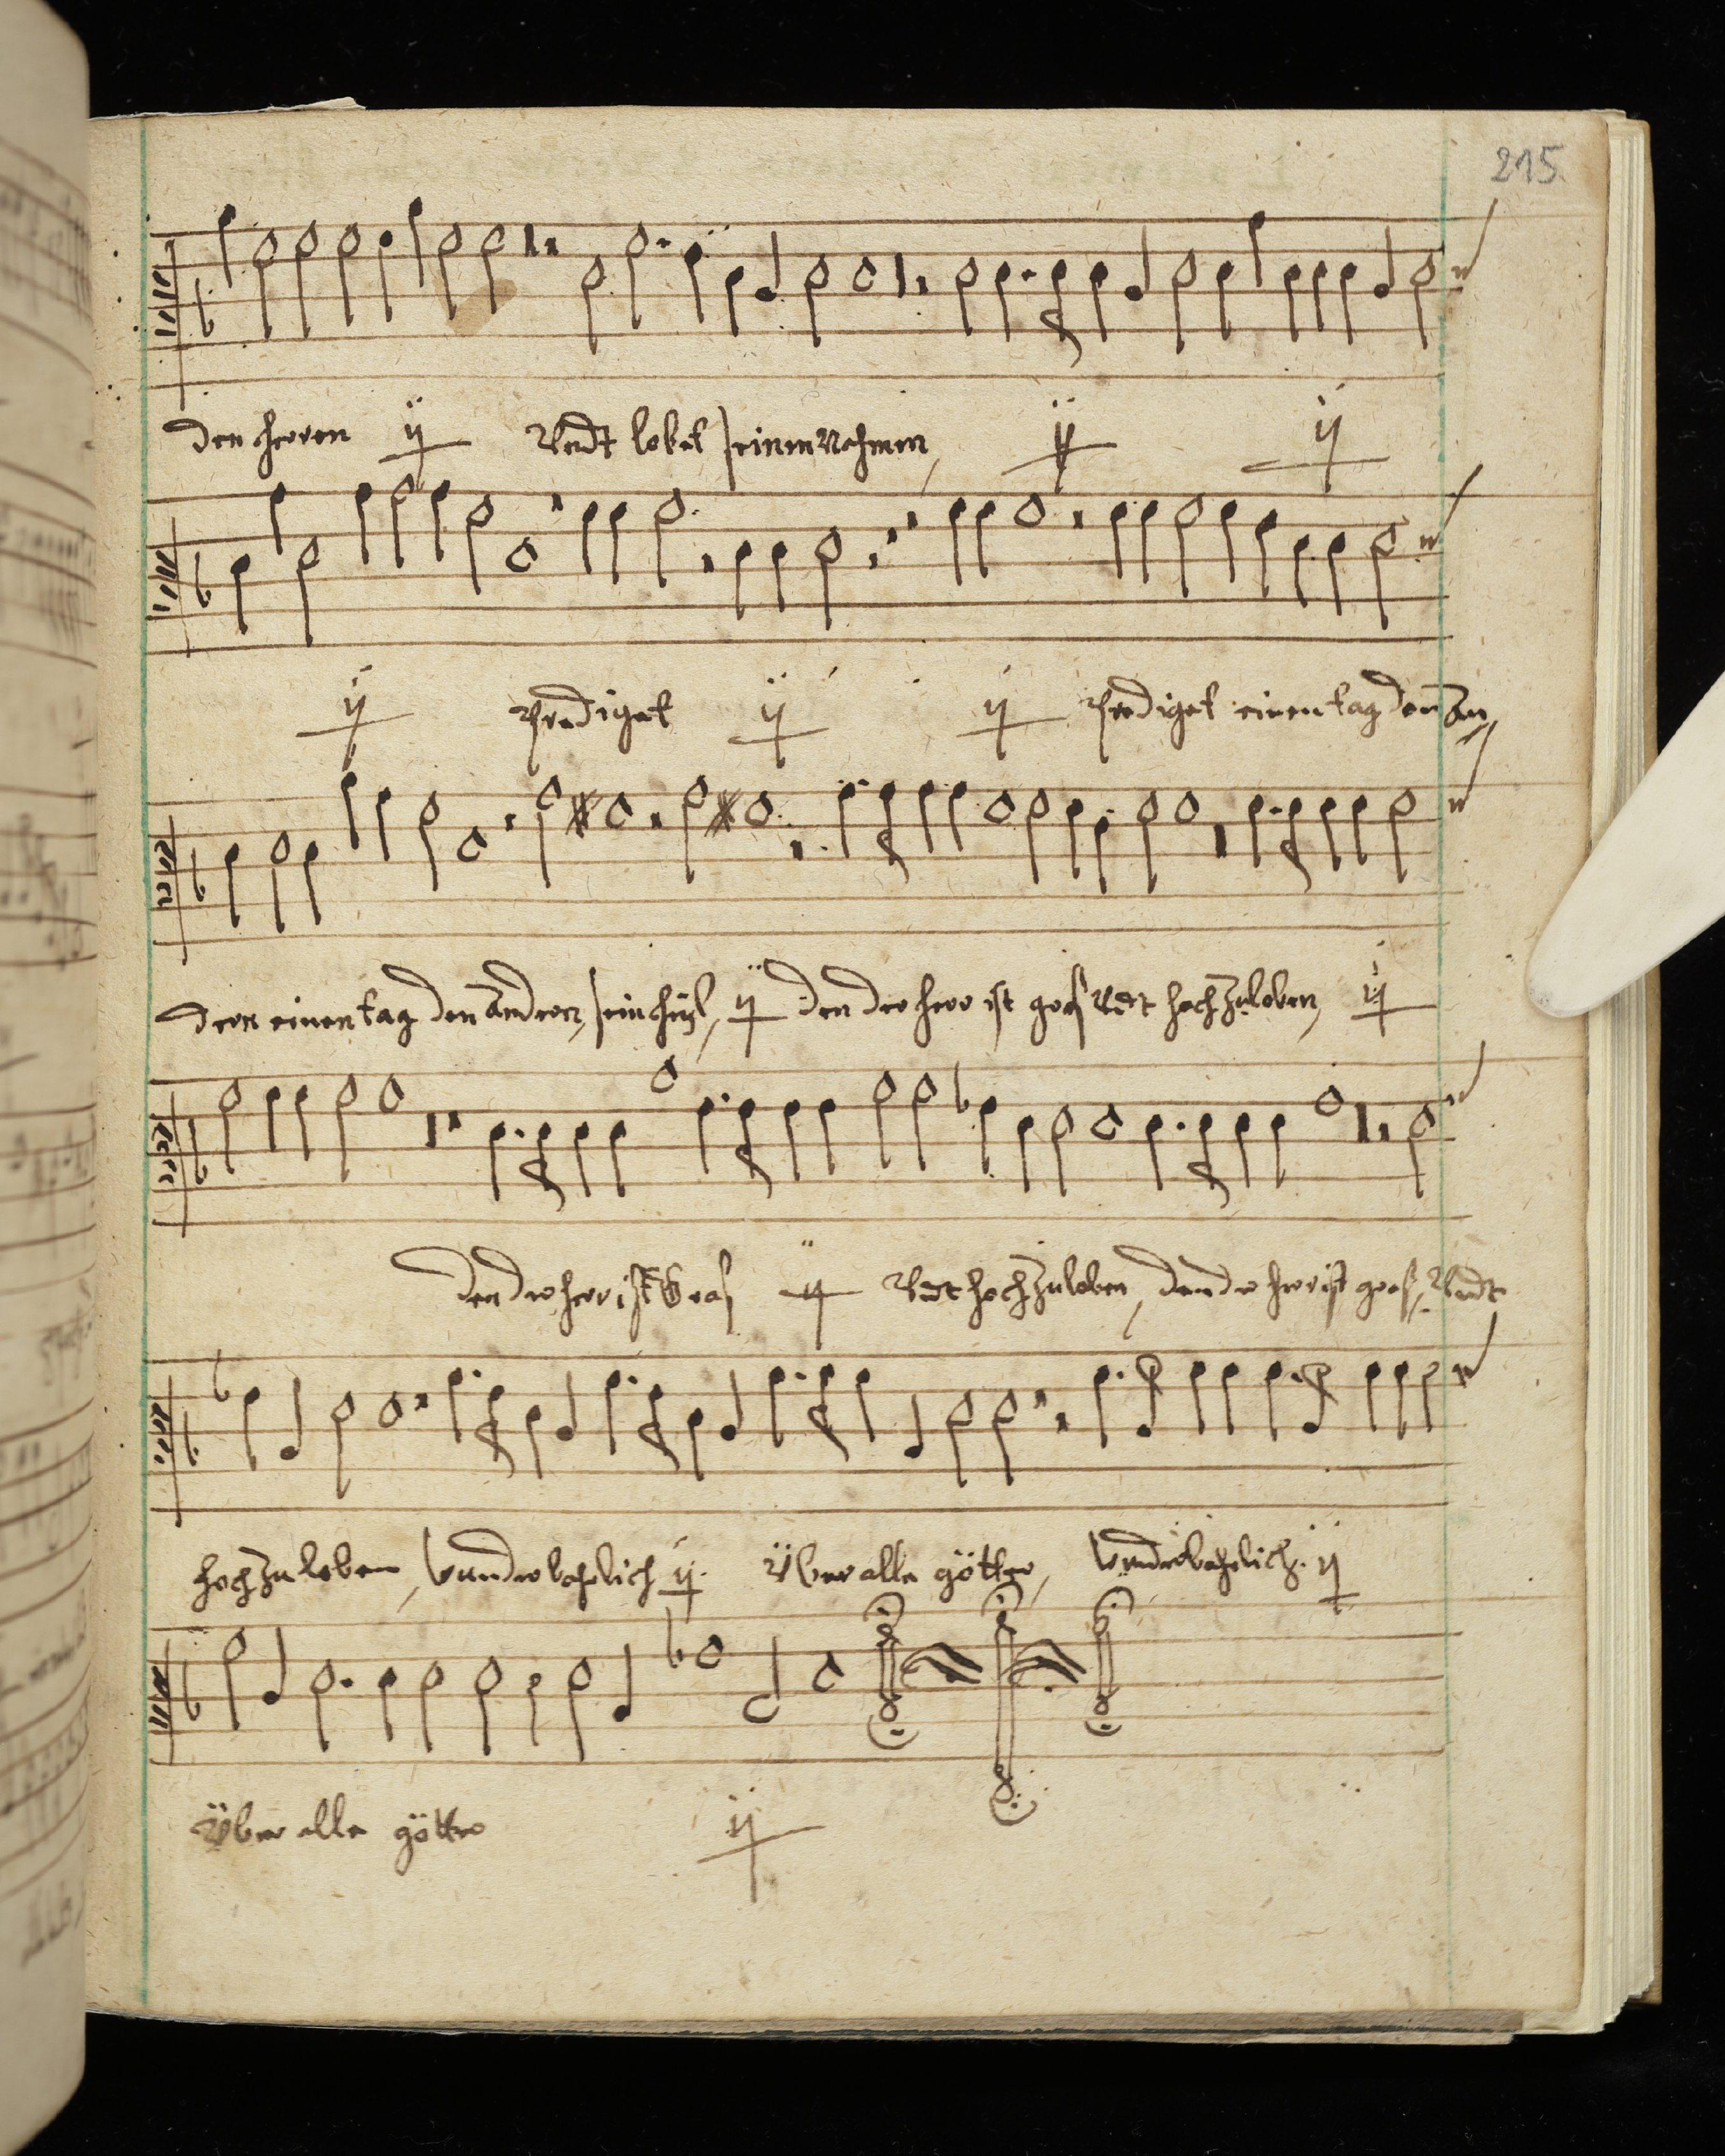 215.
den herren ij Vndt lobet seinen Nahmen, ij ij
ij Prediget ij ij Prediget einen tag den an,
dern einen tag den andern, sein heÿl, ij den der herr ist gros Vndt hoch zu loben, ij
den der herr ist Gros ij Vndt hoch zu loben, den der herr ist gros, Vndt
hoch zu loben, wunderbahrlich ij Vber alle götter, wunderbahrlich. ij
Vber alle götter ij